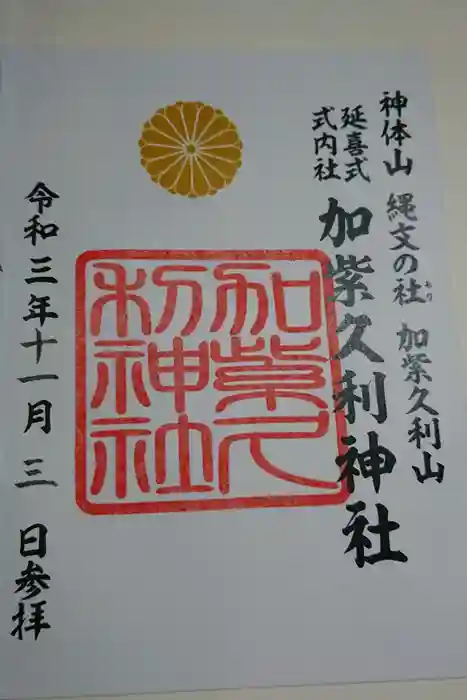 神体山 縄文の社 加紫久利山
もり
延喜式
式内社
加紫久利神社
加紫久
利神社
令和三年十一月三日参拝